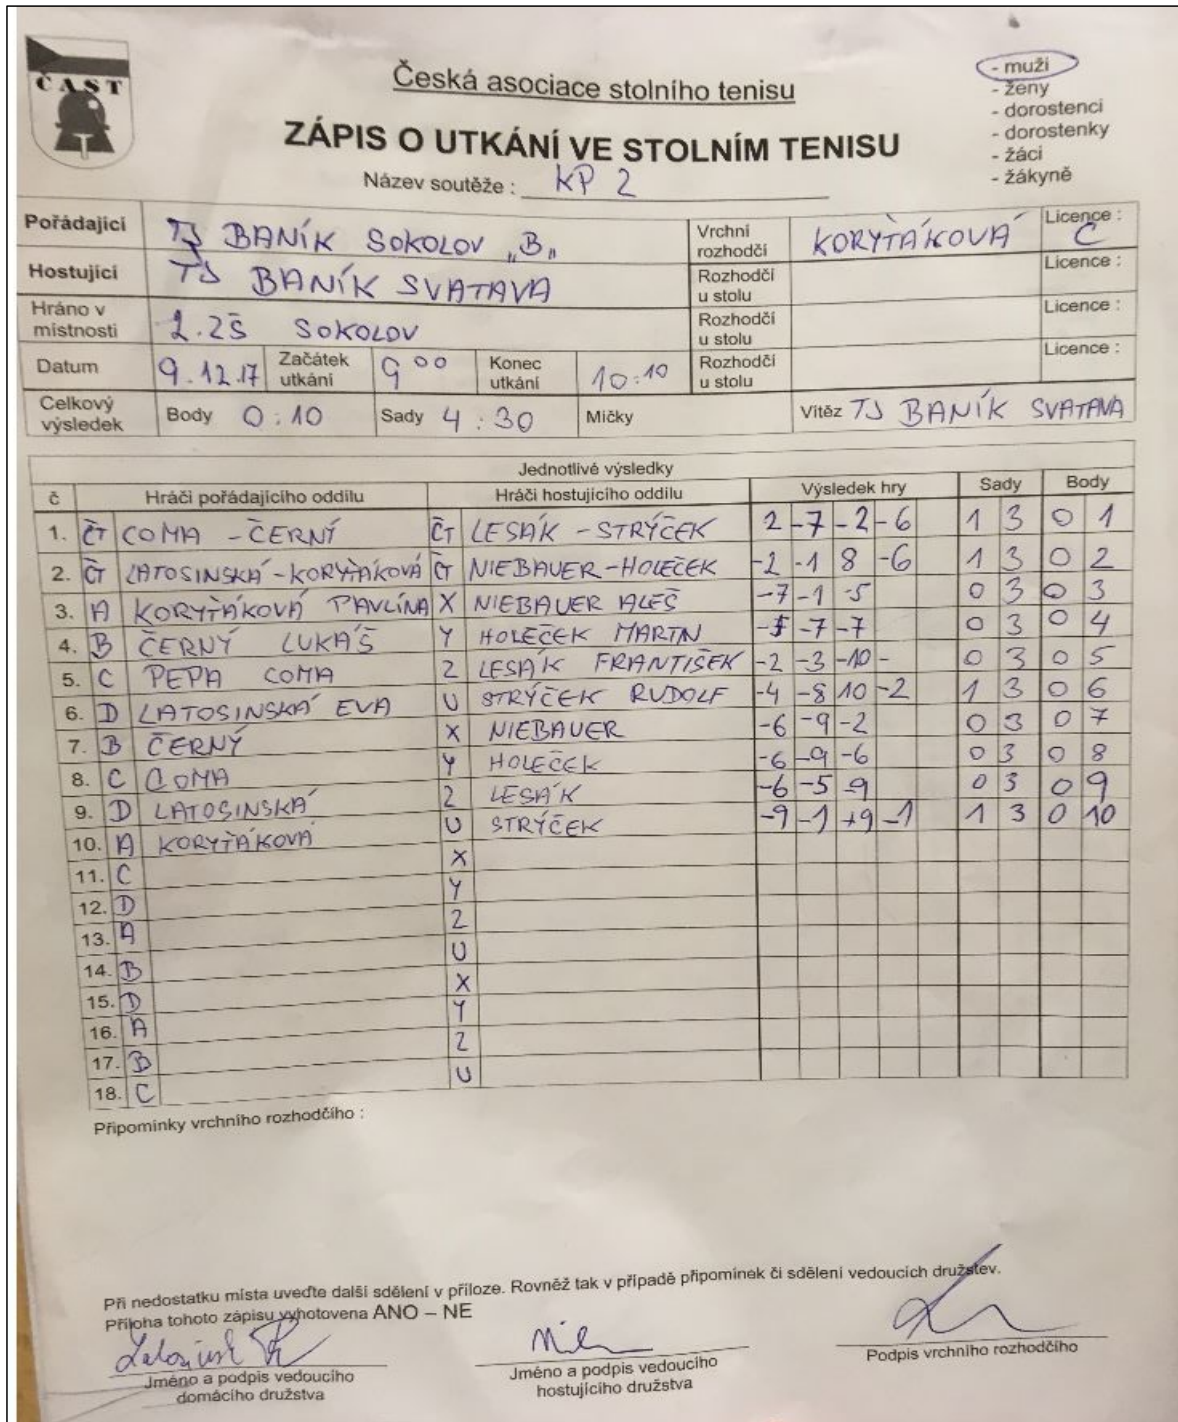 ČAST
Česká asociace stolního tenisu
ZÁPIS O UTKÁNÍ VE STOLNÍM TENISU
Název soutěže : KP 2
- muži
- ženy
- dorostenci
- dorostenky
- žáci
- žákyně
Pořádající TJ BANÍK SOKOLOV „B„ Vrchní rozhodčí KORYŤÁKOVÁ Licence : C
Hostující TJ BANÍK SVATAVA Rozhodčí u stolu Licence :
Hráno v místnosti 2.ZŠ SOKOLOV Rozhodčí u stolu Licence :
Datum 9.12.17 Začátek utkání 9 00 Konec utkání 10:10 Rozhodčí u stolu Licence :
Celkový výsledek Body 0:10 Sady 4:30 Míčky Vítěz TJ BANÍK SVATAVA
Jednotlivé výsledky
č Hráči pořádajícího oddílu Hráči hostujícího oddílu Výsledek hry Sady Body
1. ČT COMA - ČERNÝ ČT LESÁK - STRÝČEK 2 -7 -2 -6 1 3 0 1
2. ČT LATOSINSKÁ-KORYŤÁKOVÁ ČT NIEBAUER-HOLEČEK -2 -1 8 -6 1 3 0 2
3. A KORYŤÁKOVÁ PAVLÍNA X NIEBAUER ALEŠ -7 -1 -5 0 3 0 3
4. B ČERNÝ LUKÁŠ Y HOLEČEK MARTIN -7 -7 0 3 0 4
5. C PEPA COMA Z LESÁK FRANTIŠEK -2 -3 -10 - 0 3 0 5
6. D LATOSINSKÁ EVA U STRÝČEK RUDOLF -4 -8 10 -2 1 3 0 6
7. B ČERNÝ X NIEBAUER -6 -9 -2 0 3 0 7
8. C COMA Y HOLEČEK -6 -9 -6 0 3 0 8
9. D LATOSINSKÁ Z LESÁK -6 -5 -9 0 3 0 9
10. A KORYŤÁKOVÁ U STRÝČEK -9 -1 +9 -1 1 3 0 10
11. C X
12. D Y
13. A Z
14. B U
15. D X
16. A Y
17. B Z
18. C U
Připomínky vrchního rozhodčího :
Při nedostatku místa uveďte další sdělení v příloze. Rovněž tak v případě připomínek či sdělení vedoucích družstev.
Příloha tohoto zápisu vyhotovena ANO – NE
Jméno a podpis vedoucího domácího družstva
Jméno a podpis vedoucího hostujícího družstva
Podpis vrchního rozhodčího